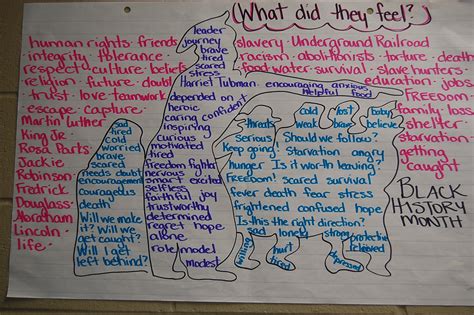 (What did they feel?)
human rights · friends
integrity tolerance ·
respect culture beliefs
religion · future · doubt
trust · love · teamwork
escape · capture ·
Martin Luther
King Jr ·
Rosa Parks ·
Jackie
Robinson ·
Fredrick
Douglass ·
Abraham
Lincoln ·
life ·
leader
journey
brave
tired
scared
stress
Harriet Tubman
depended on
heroic
caring confident
inspiring
curious
motivated
tired
freedom fights
nervous
smart excited
selfless
faith joy
trustworthy
determined
regret hope
alone
role model
modest
encouraging anxious
Helpful food
slavery Underground Railroad
racism · abolitionists · torture · death
food · water · survival · slave hunters
education · jobs
FREEDOM
family loss
shelter
starvation
getting
caught
BLACK
HISTORY
MONTH
sad
tired
cold
worried
brave
scared
needs doubt
encouragement
courageous
death
Will we make
it? Will we
get caught?
Will I get
left behind?
cold
lost
baby
threats
weak
brave
believe
serious Should we follow?
Keep going! Starvation angry
hunger Is it worth leaving
Freedom! scared survival
fever death fear stress
frightened confused hope
Is this the right direction?
sad loneld strong protective
relieved
willing
hurt
tired
depressed